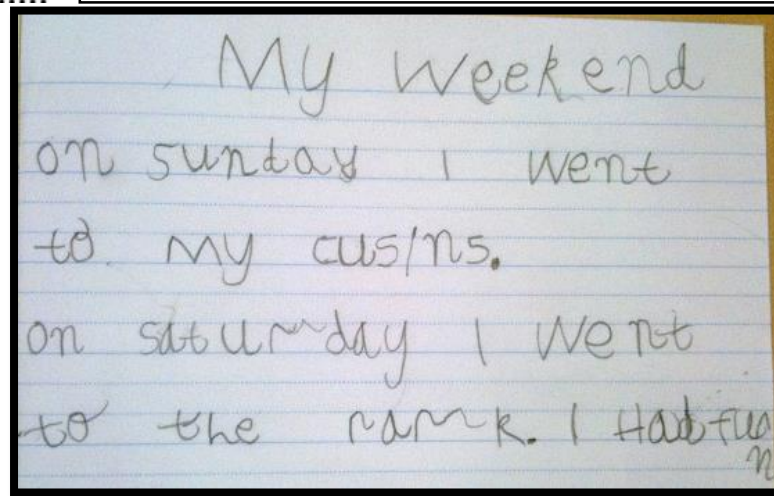 My Weekend
on sunday I went
to my cusins.
on saturday I went
to the park. I Had fun